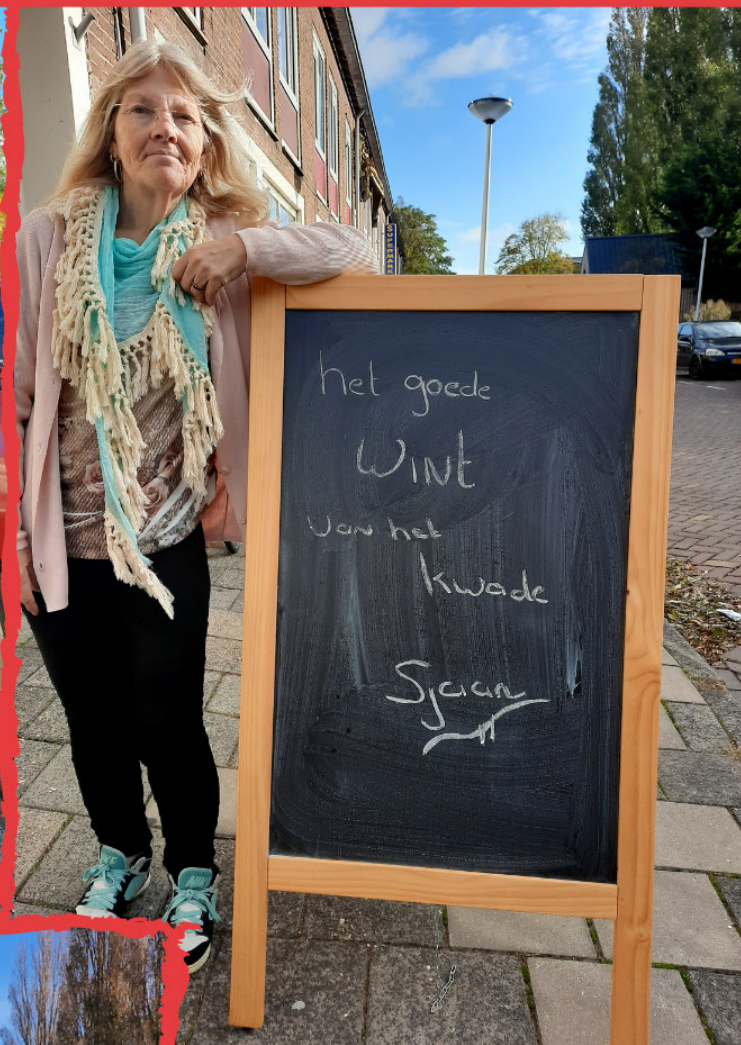 het goede
WINt
van het
kwade
Sjaan